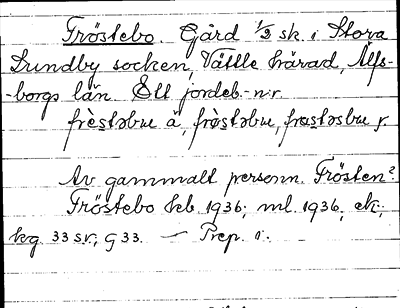 Fröstebo. Gård 1/2 sk. i Stora
Lundby socken, Vättle härad, Älfs-
-borgs län. Ett jordeb.-nr.
frèstəbu å, frøstəbu, frøstəsbu
Av gammalt personn. Frösten?
Fröstebo kb. 1936; ml. 1936, ek;
kg 33 sv; g 33. — Prep. i.